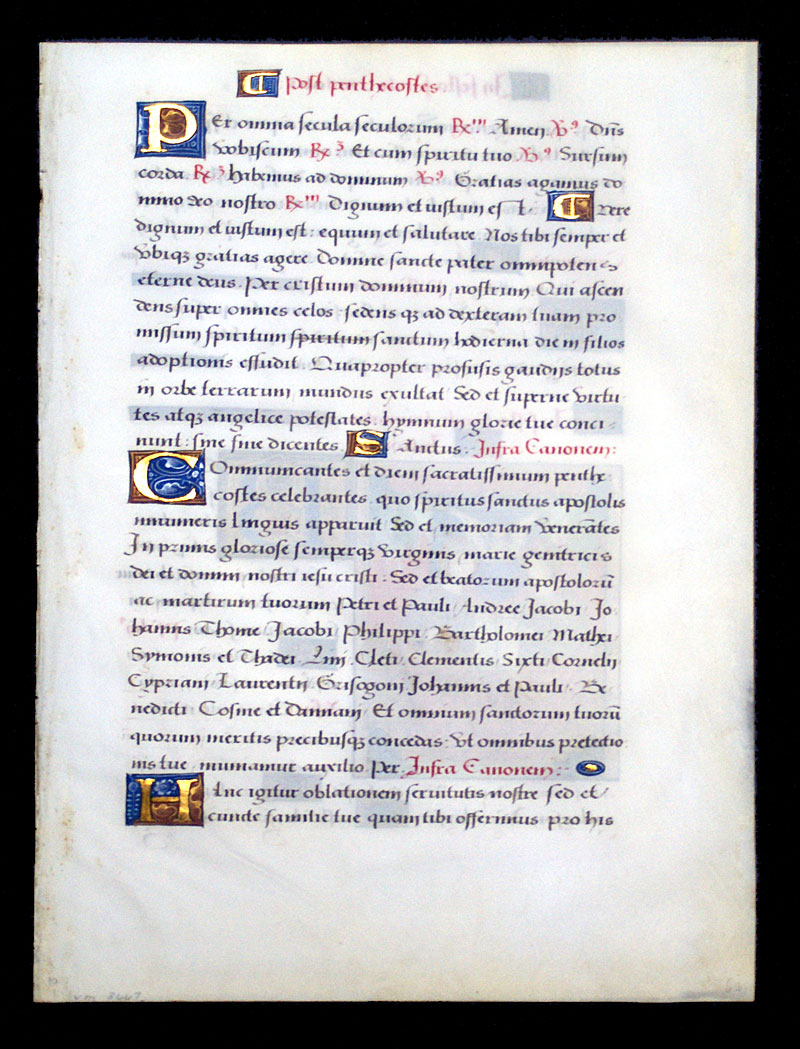 Post penthecostes
PEr omnia secula seculorum Rx m Amen V9 Dñs
vobiscum Rx3 Et cum spiritu tuo V9 Sursum
corda Rx3 habemus ad dominum V9 Gratias agamus do
mino deo nostro Rx m Dignum et iustum est. vere
dignum et iustum est: equum et salutare. Nos tibi semper et
vbiqz gratias agere. Domine sancte pater omnipotens
eterne deus. Per cristum dominum nostrum. Qui ascen
dens super omnes celos: sedens qz ad dexteram tuam pro
missum spiritum spiritum sanctum hodierna die in filios
adoptionis effudit. Quapropter profusis gaudijs totus
in orbe terrarum mundus exultat Sed et superne virtu
tes atqz angelice potestates. hymnum glorie tue conci
nunt: sine fine dicentes. SAnctus. Infra Canonem:
COmmunicantes et diem sacratissimum penthe
costes celebrantes. quo spiritus sanctus apostolis
innumeris linguis apparuit Sed et memoriam venerãtes
In primis gloriose semperqz virginis marie genitricis
dei et domini nostri iesu cristi: Sed et beatorum apostolorũ
ac martirum tuorum Petri et Pauli Andree Jacobi Jo
hannis Thome Jacobi Philippi Bartholomei Mathei
Symonis et Thadei Lini Cleti Clementis Sixti Cornelij
Cypriani Laurentij Grisogoni Johannis et Pauli Be
nedicti Cosme et Damiani Et omnium sanctorum tuorũ
quorum meritis precibusqz concedas: Vt omnibus protectio
nis tue muniamur auxilio. Per. Infra Canonem:
HAnc igitur oblationem seruitutis nostre sed et
cuncte familie tue quam tibi offerimus pro his